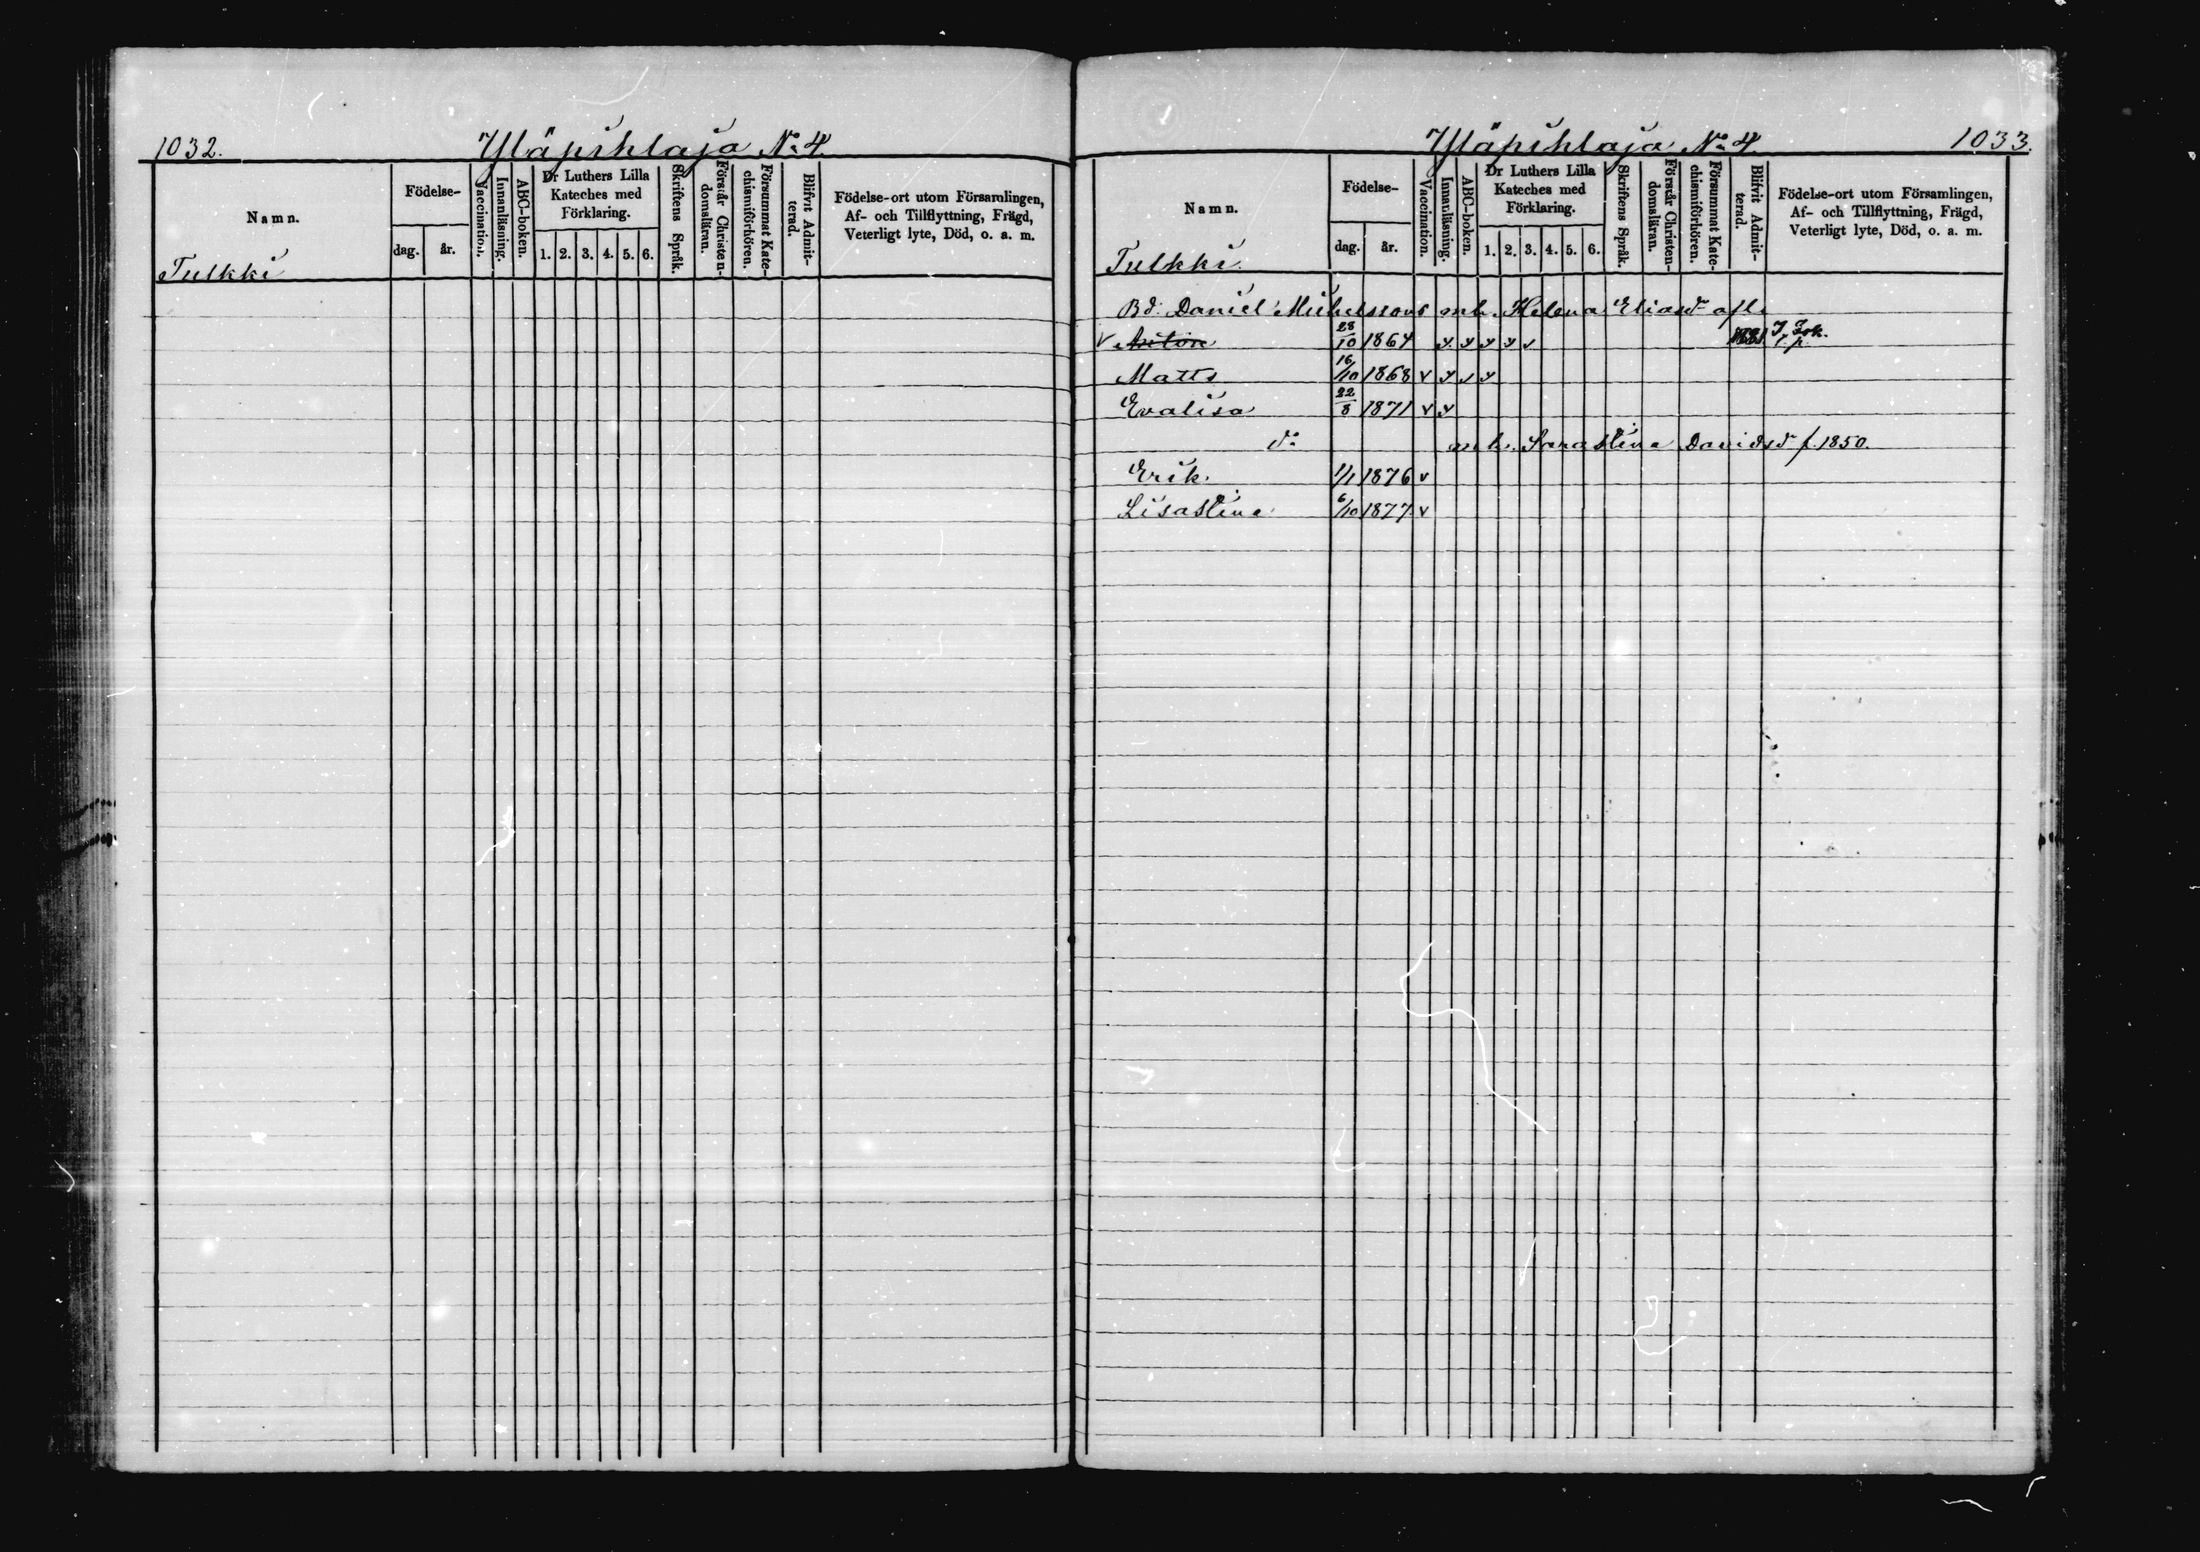 1032.
Yläpihlaja No 4.
Namn.
Födelse-
dag. år.
Vaccination.
Innanläsning.
ABC-boken.
Dr Luthers Lilla
Kateches med
Förklaring.
1. 2. 3. 4. 5. 6.
Skriftens Språk.
Förstår Christen-
domsläran.
Försummat Kate-
chismiförhören.
Blifvit Admit-
terad.
Födelse-ort utom Församlingen,
Af- och Tillflyttning, Frägd,
Veterligt lyte, Död, o. a. m.
Tulkki
Yläpihlaja No 4
1033.
Namn.
Födelse-
dag. år.
Vaccination.
Innanläsning.
ABC-boken.
Dr Luthers Lilla
Kateches med
Förklaring.
1. 2. 3. 4. 5. 6.
Skriftens Språk.
Förstår Christen-
domsläran.
Försummat Kate-
chismiförhören.
Blifvit Admit-
terad.
Födelse-ort utom Församlingen,
Af- och Tillflyttning, Frägd,
Veterligt lyte, Död, o. a. m.
Tulkki.
Bd. Daniel Michelssons m h. Helena Eliasdr afl.
v Anton 28/10 1864 v v v v v 1881
Matts 16/10 1868 v v v v
Evalisa 22/8 1871 v v
do m h. Sarastina Davidsdr f. 1850.
Erik. 1/1 1876 v
Lisastina 6/10 1877. v